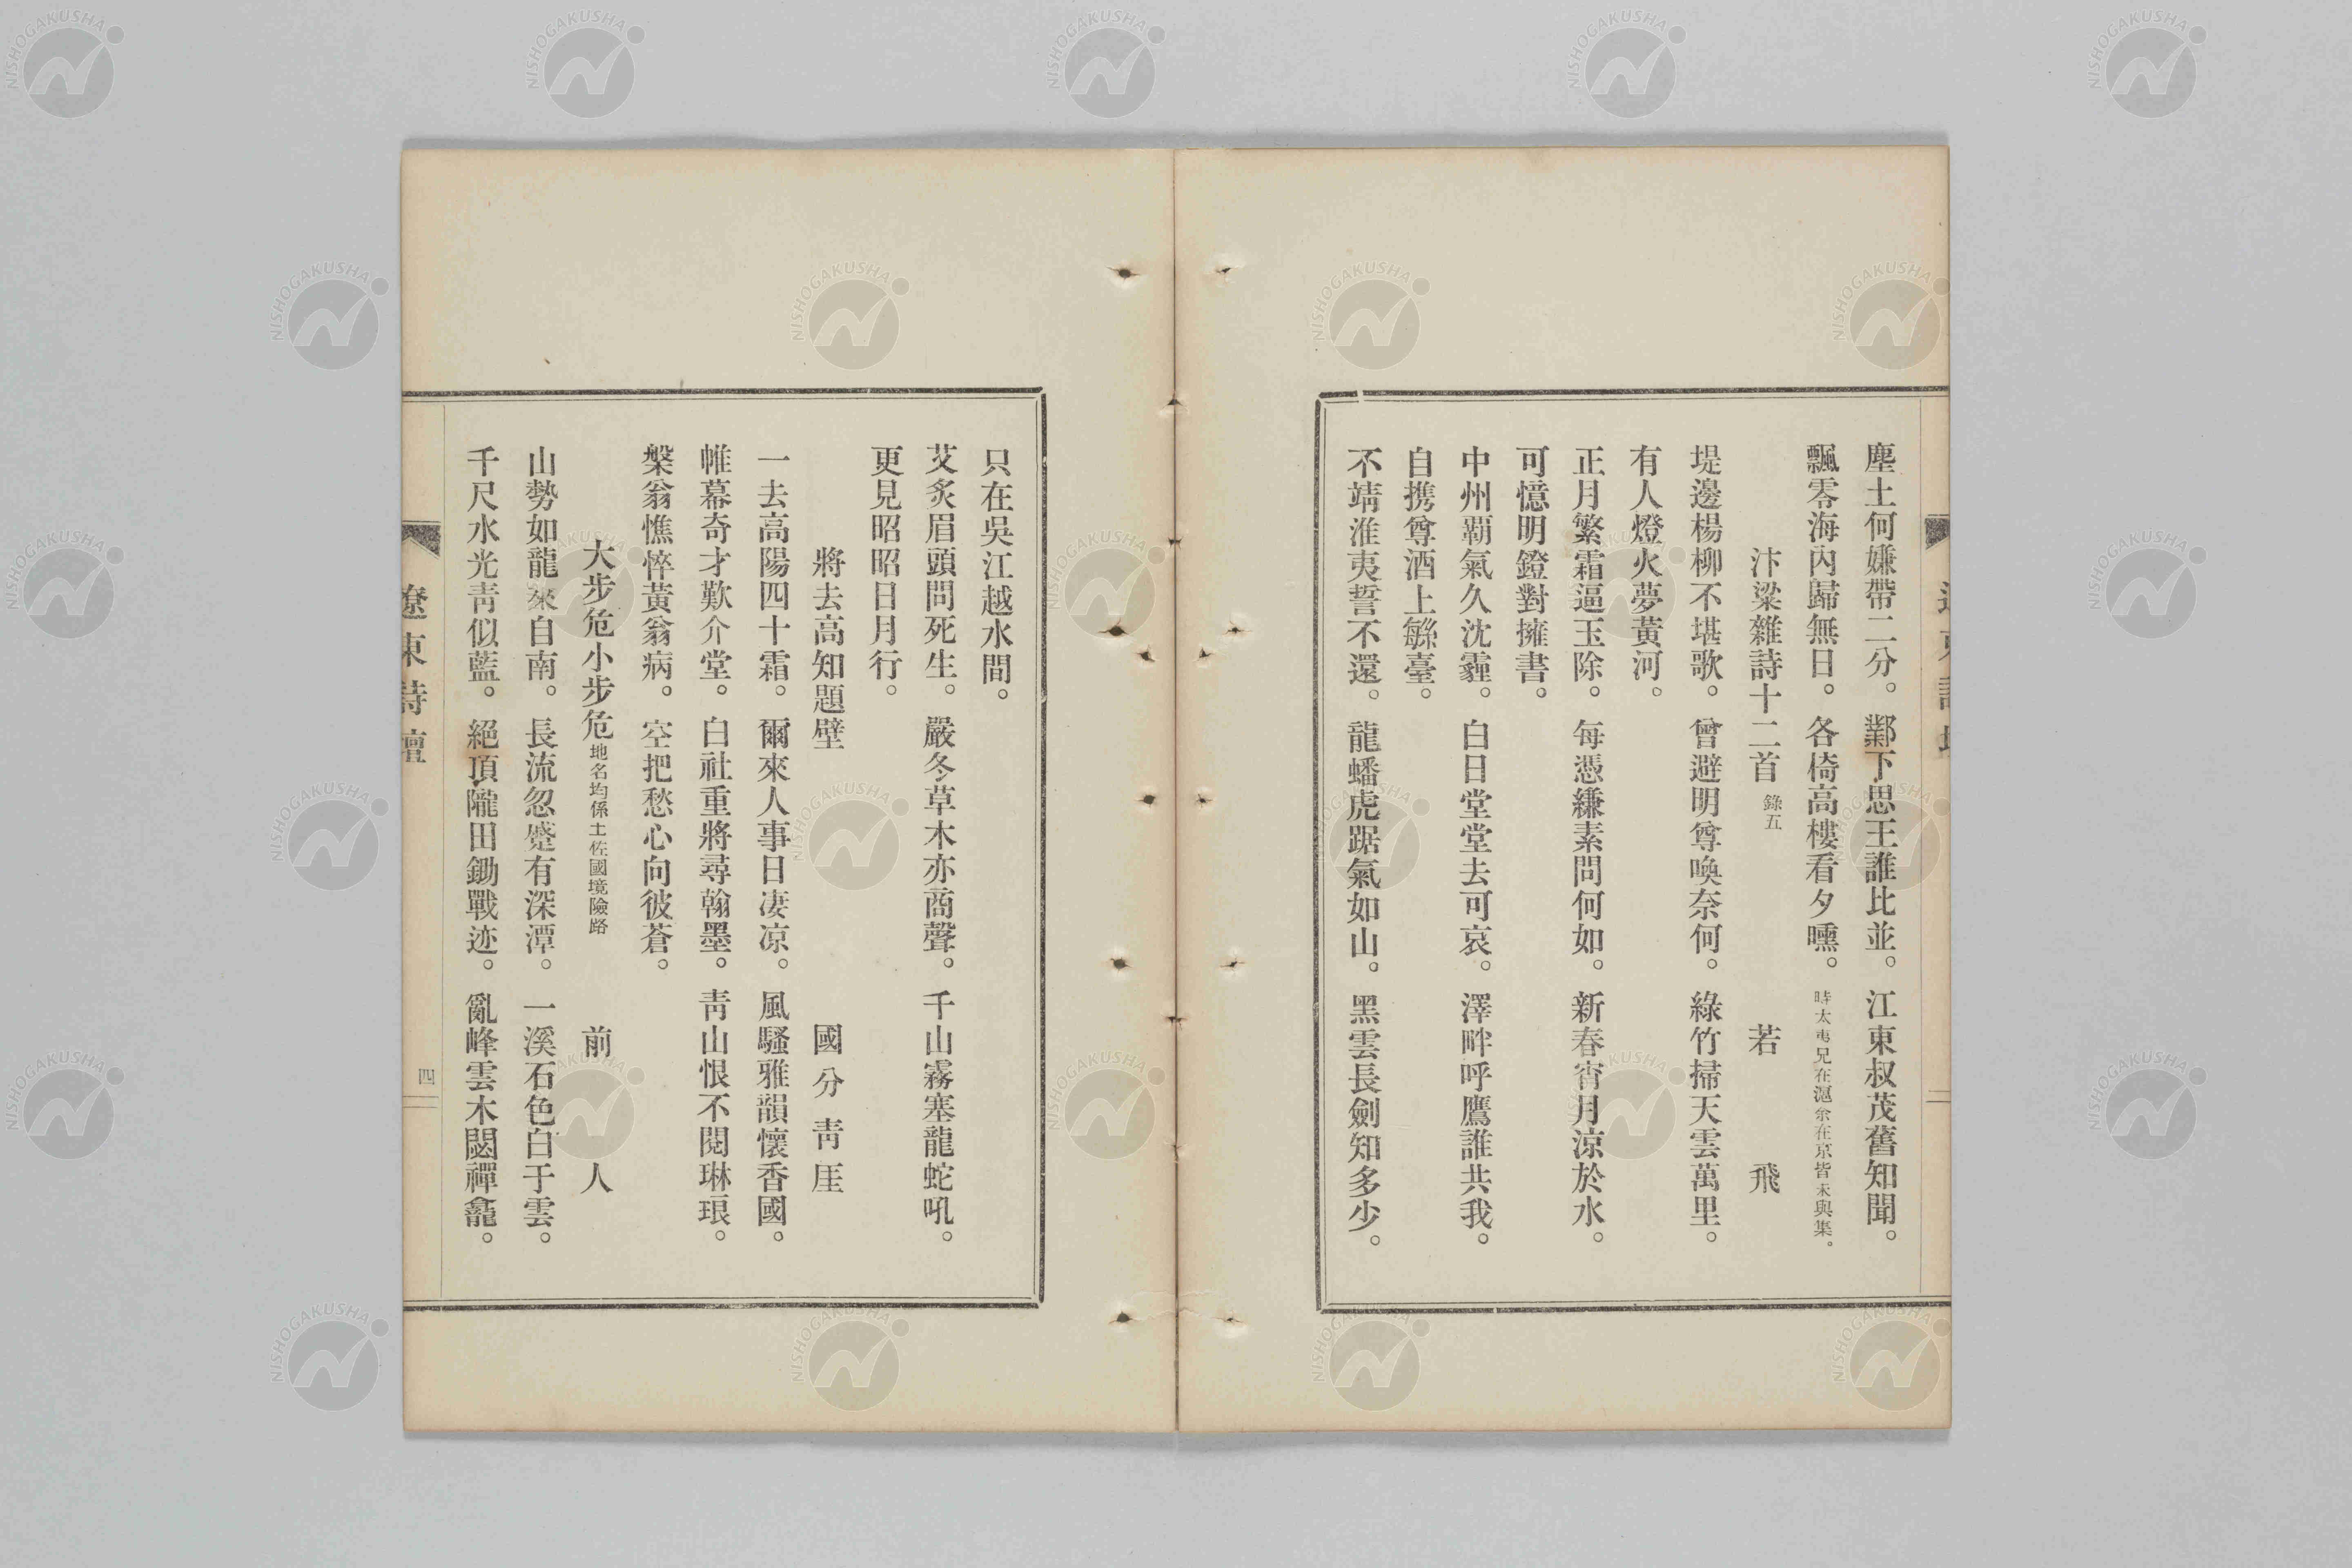 塵土何嫌帶二分。鄴下思王誰比並。江東叔茂舊知聞。
飄零海內歸無日。各倚高樓看夕曛。時太夷兄在滬余在京皆未與集。
汴梁雜詩十二首 錄五 若飛
堤邊楊柳不堪歌。曾避明尊喚奈何。綠竹掃天雲萬里。
有人燈火夢黃河。
正月繁霜逼玉除。每憑縑素問何如。新春宵月涼於水。
可憶明鐙對擁書。
中州覇氣久沈霾。白日堂堂去可哀。澤畔呼鷹誰共我。
自携尊酒上繇臺。
不靖淮夷誓不還。龍蟠虎踞氣如山。黑雲長劍知多少。
只在吳江越水間。
艾炙眉頭問死生。嚴冬草木亦商聲。千山霧塞龍蛇吼。
更見昭昭日月行。
將去高知題壁 國分靑厓
一去高陽四十霜。爾來人事日凄凉。風騷雅韻懷香國。
帷幕奇才歎介堂。白社重將尋翰墨。靑山恨不閱琳琅。
槃翁憔悴黃翁病。空把愁心向彼蒼。
大步危小步危 地名均係土佐國境險路 前人
山勢如龍來自南。長流忽蹙有深潭。一溪石色白于雲。
千尺水光靑似藍。絕頂隴田鋤戰迹。亂峰雲木閟禪龕。
遼東詩壇
四
NISHOGAKUSHA